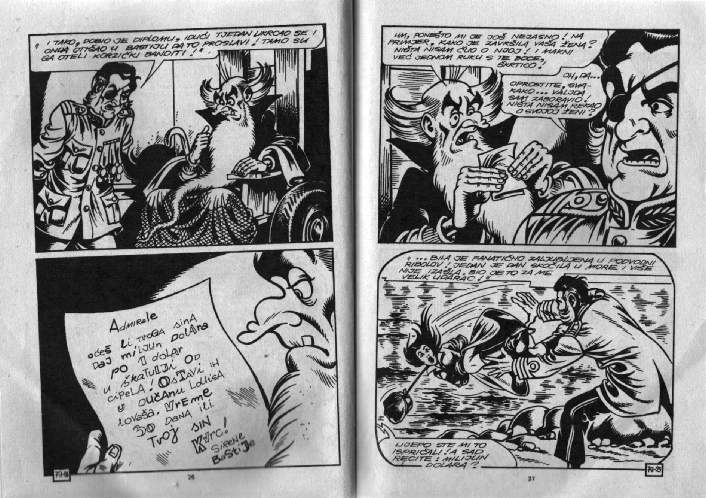 "I TAKO, DOBIO JE DIPLOMU, IDUĆI TJEDAN UKRCAO SE I
ONDA OTIŠAO U BASTIJU DA TO PROSLAVI! TAMO SU
GA OTELI KORZIČKI BANDITI!"
ADMIRALE
OĆEŠ LI TVOGA SINA
DAJ MILIJUN DOLARA
PO 1 DOLAR
U ŠKATULJI OD
CIPELA! OSTAVI IH
U DUĆANU LOUISA
LOVEŠA. VREME
30 DANA ILI
TVOJ SIN!
KVRC!
SIRENE
BASTIJE
79-18
26
HM, PONEŠTO MI JE JOŠ NEJASNO! NA
PRIMJER, KAKO JE ZAVRŠILA VAŠA ŽENA?
NIŠTA NISAM ČUO O NJOJ! I MAKNI
VEĆ JEDNOM RUKU S TE BOCE,
ŠKRTICO!
OH, DA...
OPROSTITE, SVA-
KAKO... VALJDA
SAM ZABORAVIO!
NIŠTA NISAM REKAO
O SVOJOJ ŽENI?
"... BILA JE FANATIČNO ZALJUBLJENA U PODVODNI
RIBOLOV! JEDAN JE DAN SKOČILA U MORE I VIŠE
NIJE IZAŠLA, BIO JE TO ZA ME
VELIK UDARAC!"
LIJEPO STE MI TO
ISPRIČALI! A SAD
RECITE: MILIJUN
DOLARA?
27